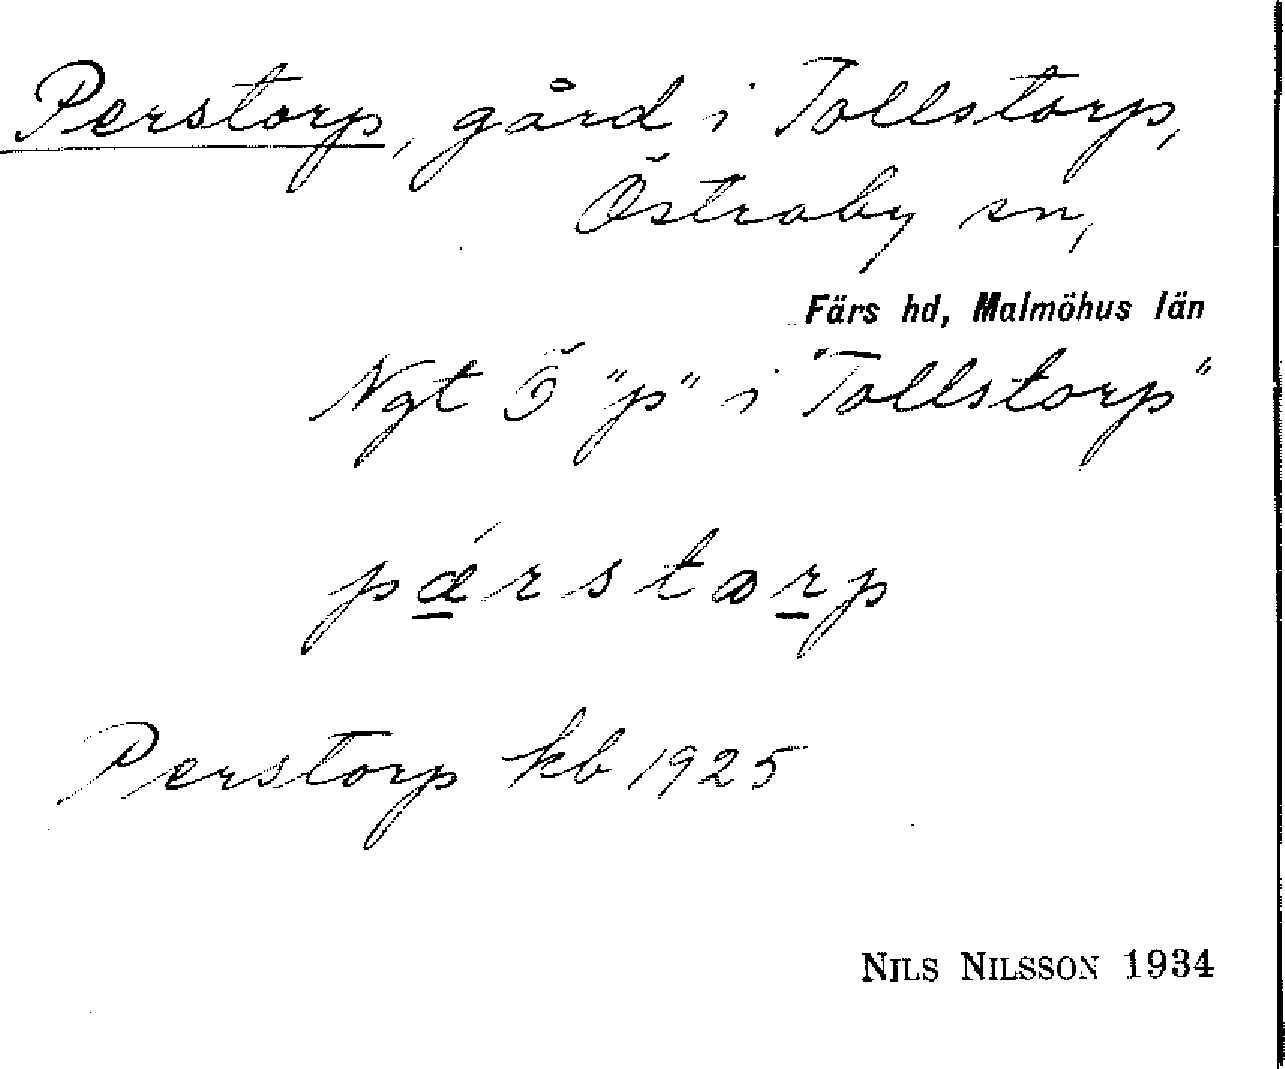 Perstorp, gård i Tollstorp,
Östraby sn,
Färs hd, Malmöhus län
Ngt Ö "p" i "Tollstorp"
pǽrstɔrp
Perstorp kb 1925
NILS NILSSON 1934